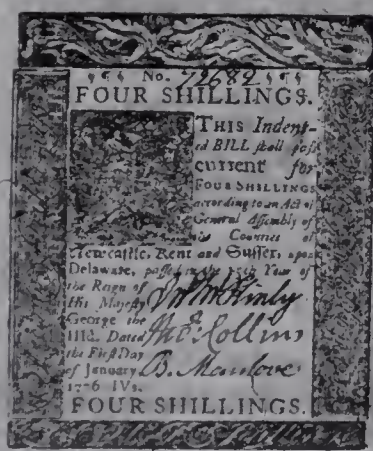 No. 72682
FOUR SHILLINGS.
THIS Indent-
ed BILL shall pass
current for
FOUR SHILLINGS
according to an Act of
General Assembly of
the Counties of
Newcastle, Kent and Sussex, upon
Delaware, passed in the 15th Year of
the Reign of
His Majesty
George the
IIId. Dated
the First Day
of January
1776 IVs.
Jn McKinly
Thos. Collins
B. Manlove
FOUR SHILLINGS.